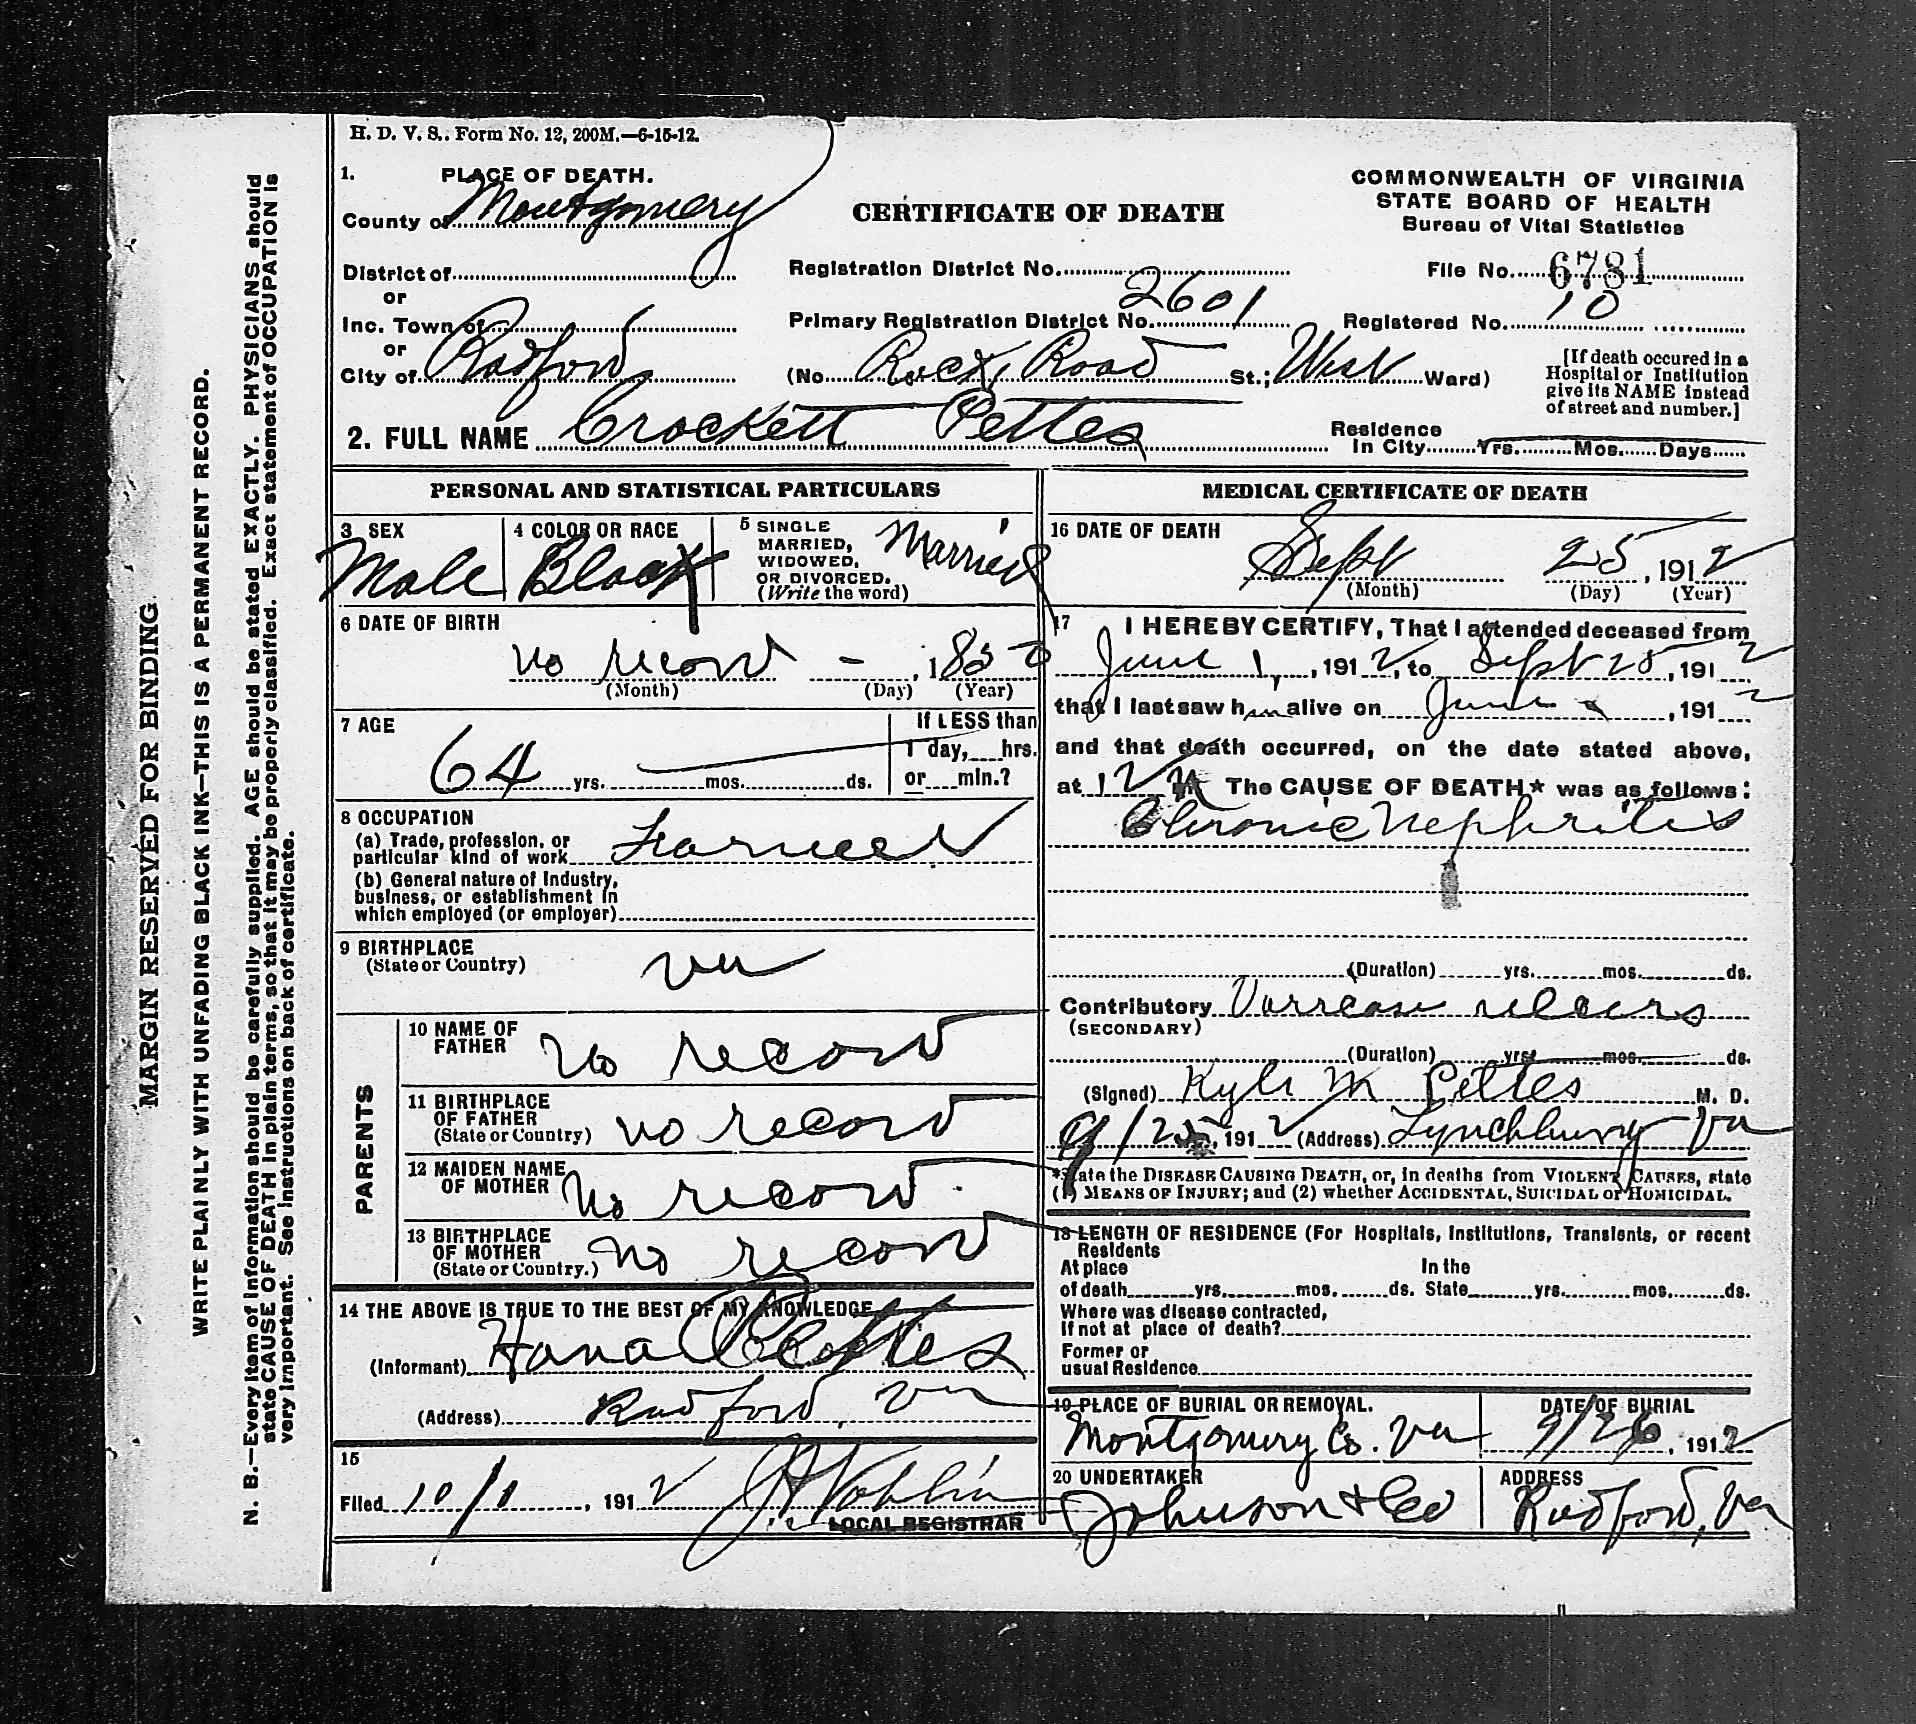 H. D. V. S.. Form No. 12, 200M.—6-15-12.
1. PLACE OF DEATH.
County of Montgomery
District of
or
Inc. Town of
or
City of Radford
CERTIFICATE OF DEATH
Registration District No.
Primary Registration District No. 2601
(No. Rock Road St.; West Ward)
COMMONWEALTH OF VIRGINIA
STATE BOARD OF HEALTH
Bureau of Vital Statistics
File No. 6781
Registered No. 10
[If death occured in a
Hospital or Institution
give its NAME instead
of street and number.]
2. FULL NAME Crockett Pettes
Residence
In City Yrs. Mos. Days
PERSONAL AND STATISTICAL PARTICULARS
3 SEX
Male
4 COLOR OR RACE
Black
5 SINGLE
MARRIED,
WIDOWED,
OR DIVORCED.
(Write the word)
Married
6 DATE OF BIRTH
no record - , 1850
(Month) (Day) (Year)
7 AGE
64 yrs. mos. ds.
If LESS than
1 day, hrs.
or min.?
8 OCCUPATION
(a) Trade, profession, or
particular kind of work Farmer
(b) General nature of Industry,
business, or establishment in
which employed (or employer)
9 BIRTHPLACE
(State or Country)
Va
PARENTS
10 NAME OF
FATHER
No record
11 BIRTHPLACE
OF FATHER
(State or Country)
no record
12 MAIDEN NAME
OF MOTHER
No record
13 BIRTHPLACE
OF MOTHER
(State or Country.)
no record
14 THE ABOVE IS TRUE TO THE BEST OF MY KNOWLEDGE
(Informant) Hana Pettes
(Address) Radford, Va
15
Filed 10/1, 1912
LOCAL REGISTRAR
MEDICAL CERTIFICATE OF DEATH
16 DATE OF DEATH
Sept 25, 1912
(Month) (Day) (Year)
17 I HEREBY CERTIFY, That I attended deceased from
June 1, 1912, to Sept 25, 1912
that I last saw him alive on June , 1912
and that death occurred, on the date stated above,
at 12 M. The CAUSE OF DEATH* was as follows:
Chronic Nephritis
(Duration) yrs. mos. ds.
Contributory Varicose ulcers
(SECONDARY)
(Duration) yrs. mos. ds.
(Signed) Kyle M Pettes M. D.
9/25, 1912 (Address) Lynchburg Va
*State the DISEASE CAUSING DEATH, or, in deaths from VIOLENT CAUSES, state
(1) MEANS OF INJURY; and (2) whether ACCIDENTAL, SUICIDAL or HOMICIDAL.
18 LENGTH OF RESIDENCE (For Hospitals, Institutions, Transients, or recent
Residents
At place In the
of death yrs. mos. ds. State yrs. mos. ds.
Where was disease contracted,
If not at place of death?
Former or
usual Residence
19 PLACE OF BURIAL OR REMOVAL.
Montgomery Co. Va
DATE OF BURIAL
9/26, 1912
20 UNDERTAKER
Johnson & Co
ADDRESS
Radford, Va
MARGIN RESERVED FOR BINDING
WRITE PLAINLY WITH UNFADING BLACK INK—THIS IS A PERMANENT RECORD.
N. B.—Every item of information should be carefully supplied. AGE should be stated EXACTLY. PHYSICIANS should
state CAUSE OF DEATH in plain terms, so that it may be properly classified. Exact statement of OCCUPATION is
very important. See instructions on back of certificate.